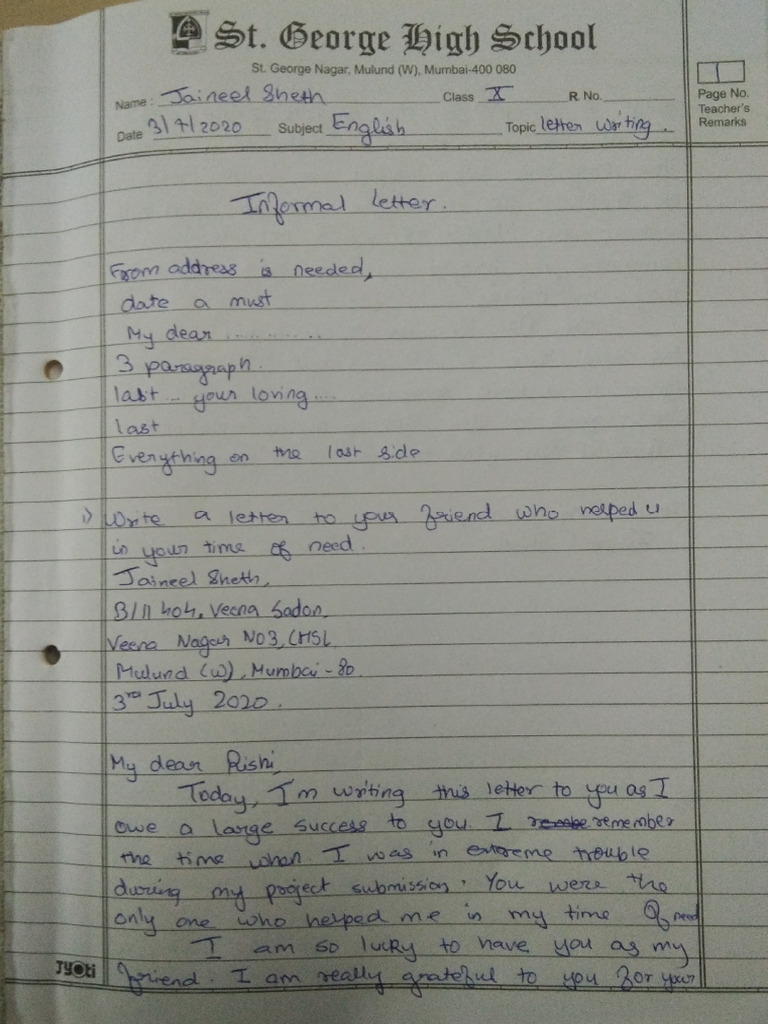 St. George High School
St. George Nagar, Mulund (W), Mumbai-400 080
Name: Jaineel Sheth Class X R. No.
Date 3/7/2020 Subject English Topic letter writing.
1
Page No.
Teacher's
Remarks
Informal letter.
From address is needed,
date a must
My dear ............
3 paragraph.
last ... your loving....
last
Everything on the last side
1) Write a letter to your friend who helped u
in your time of need.
Jaineel Sheth,
B/11 404, Veena Sadan,
Veena Nagar NO3, CHSL
Mulund (W), Mumbai-80.
3rd July 2020.
My dear Rishi,
Today, I'm writing this letter to you as I
owe a large success to you. I remember
the time when I was in extreme trouble
during my project submission. You were the
only one who helped me in my time of need
I am so lucky to have you as my
friend. I am really grateful to you for your
Jyoti